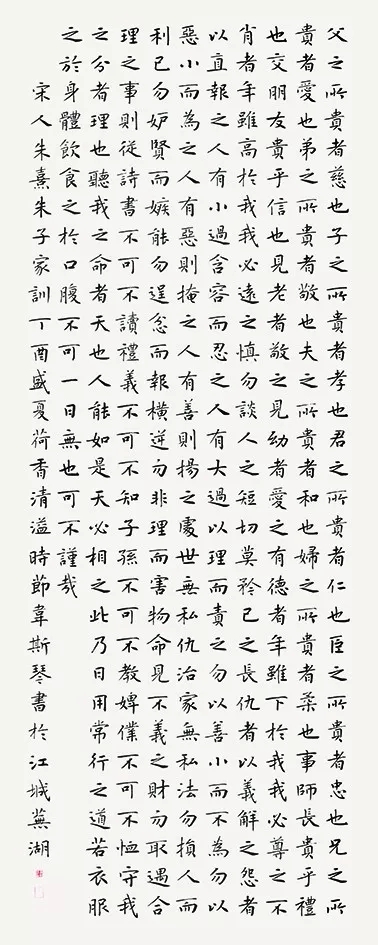 父之所貴者慈也子之所貴者孝也君之所貴者仁也臣之所貴者忠也兄之所
貴者愛也弟之所貴者敬也夫之所貴者和也婦之所貴者柔也事師長貴乎禮
也交朋友貴乎信也見老者敬之見幼者愛之有德者年雖下於我我必尊之不
肖者年雖高於我我必遠之慎勿談人之短切莫矜己之長仇者以義解之怨者
以直報之人有小過含容而忍之人有大過以理而責之勿以善小而不為勿以
惡小而為之人有惡則掩之人有善則揚之處世無私仇治家無私法勿損人而
利己勿妒賢而嫉能勿逞忿而報橫逆勿非理而害物命見不義之財勿取遇合
理之事則從詩書不可不讀禮義不可不知子孫不可不教婢僕不可不恤守我
之分者理也聽我之命者天也人能如是天必相之此乃日用常行之道若衣服
之於身體飲食之於口腹不可一日無也可不謹哉
宋人朱熹朱子家訓丁酉盛夏荷香清溢時節韋斯琴書於江城蕪湖